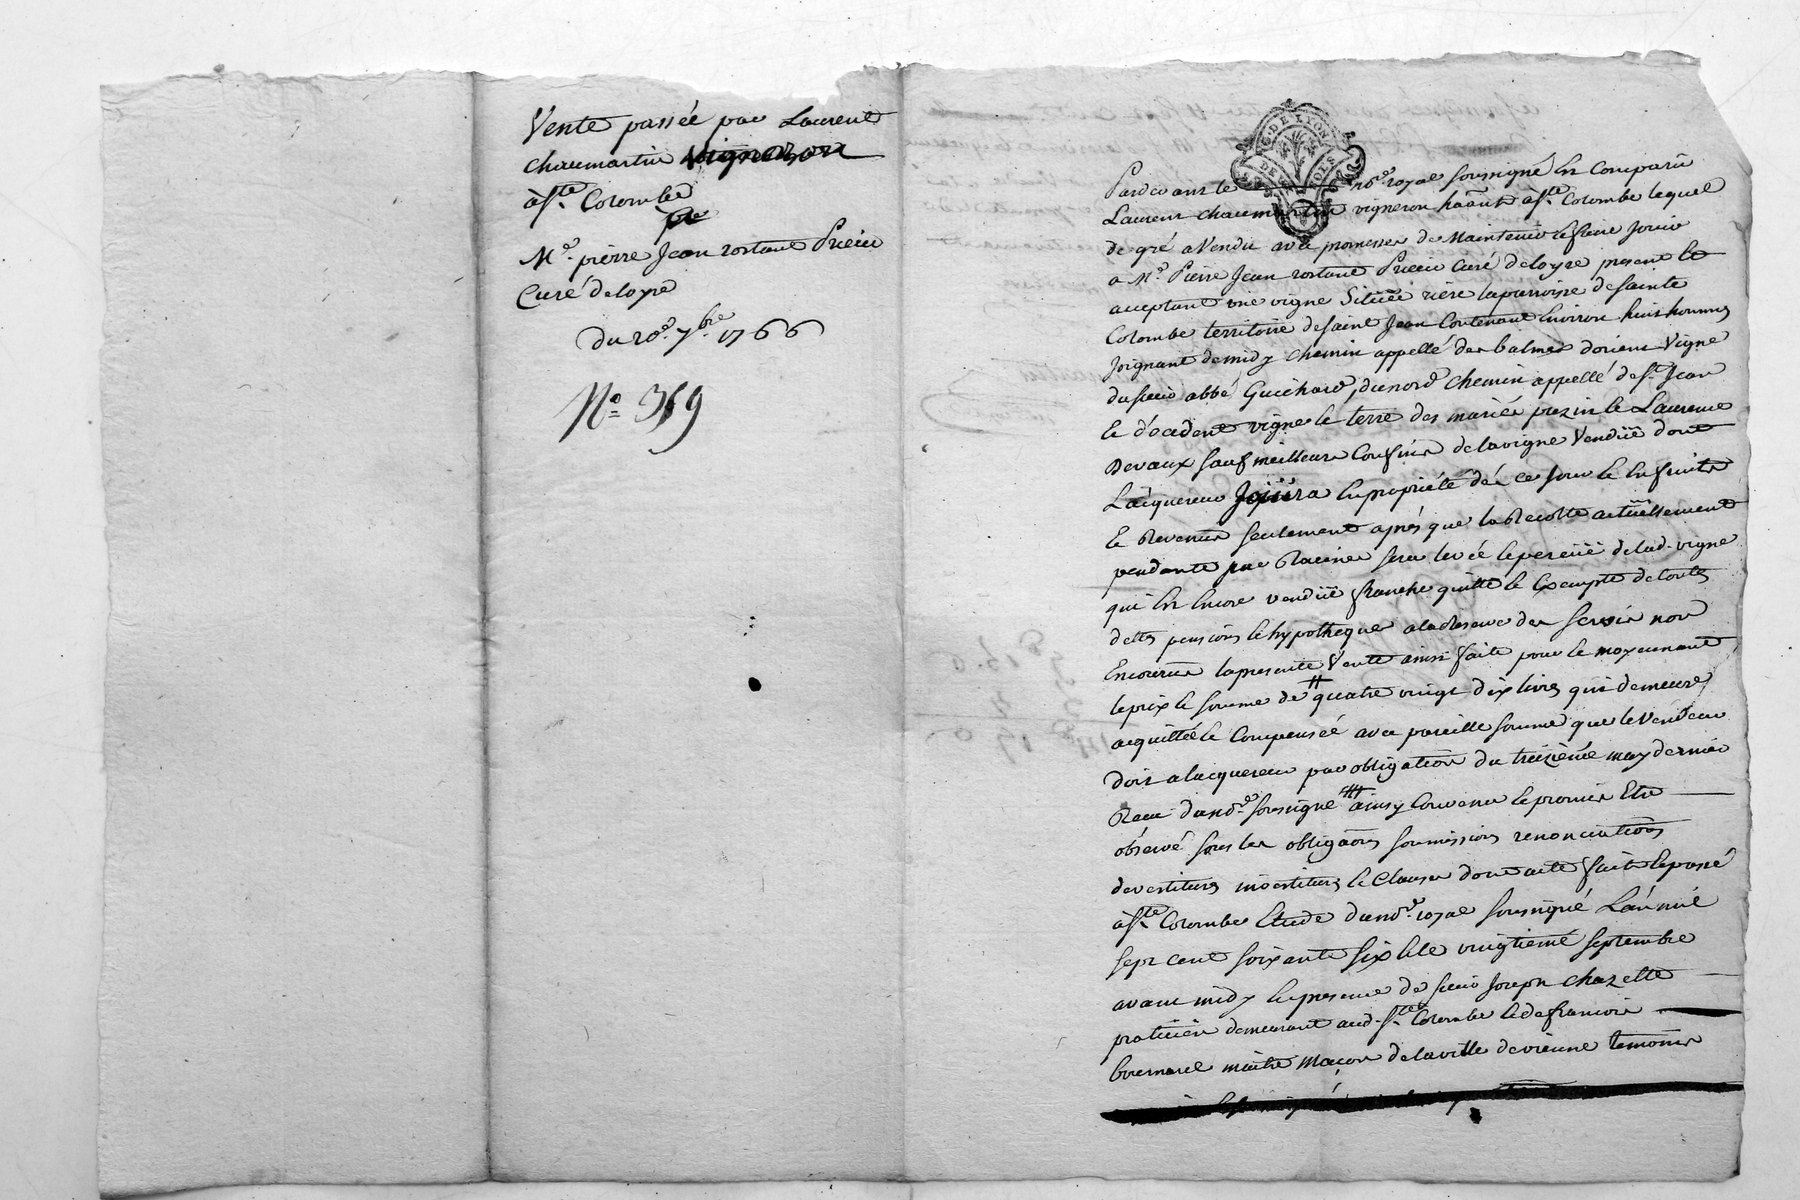 Vente passée par Laurent
chaumartin vigneron
à Ste. Colombe
Me. pierre Jean rostant Prieur
Curé de loyre
Du 20e. 7bre 1766
No. 369
G. DE LYON
Pardevant le nore. royal soussigné Est Comparû
Laurent chaumartin vigneron haânt à Ste. Colombe lequel
de gré a Vendû avec promesses de Maintenir le faire Jouir
a Me. Pierre Jean rostant Prieur Curé de loyre present Et
acceptant une vigne Situëe riére la parroisse de Sainte
Colombe territoire de saint Jean Contenant Environ huit hommes
Joignant de midy chemin appellé des balmes d'orient Vigne
du sieur abbé Guichard, du nord chemin appellé de St. Jean
Et d'occident vigne Et terre des mariés prezin Et Laurent
Devaux sauf meilleurs Confins de la vigne Vendüe dont
Lacquereur Joüira En propriété dés ce Jour Et En fruits
Et Revenus seulement aprés que la Recolte actuëllement
pendante par Racines sera levée Et perçüe de lad. vigne
qui Est Encore vendüe franche quitte Et Exempte de toutes
dettes pensions Et hypotheques a la Reserve des servis non
Encourus la presente Vente ainsi faite pour Et moyennant
le prix Et somme de quatre vingt dix livres qui demeure
acquittée Et Compensée avec pareille somme que le Vendeur
Doit a lacquereur par obligation du treizième may dernier
Recue du nore. soussigné ainsy Convenu Et promis Etre
observé sous les obligâons soumissions renonciations
devestitures investitures Et Clauses dont acte fait Et passé
à Ste. Colombe Etude du nore. royal soussigné L'an mil
sept cent soixante six Et le vingtieme septembre
avant midy En presence de sieur Joseph chazelle
praticien demeurant aud. Ste. Colombe Et de françois
maitre Maçon de la ville de vienne temoins